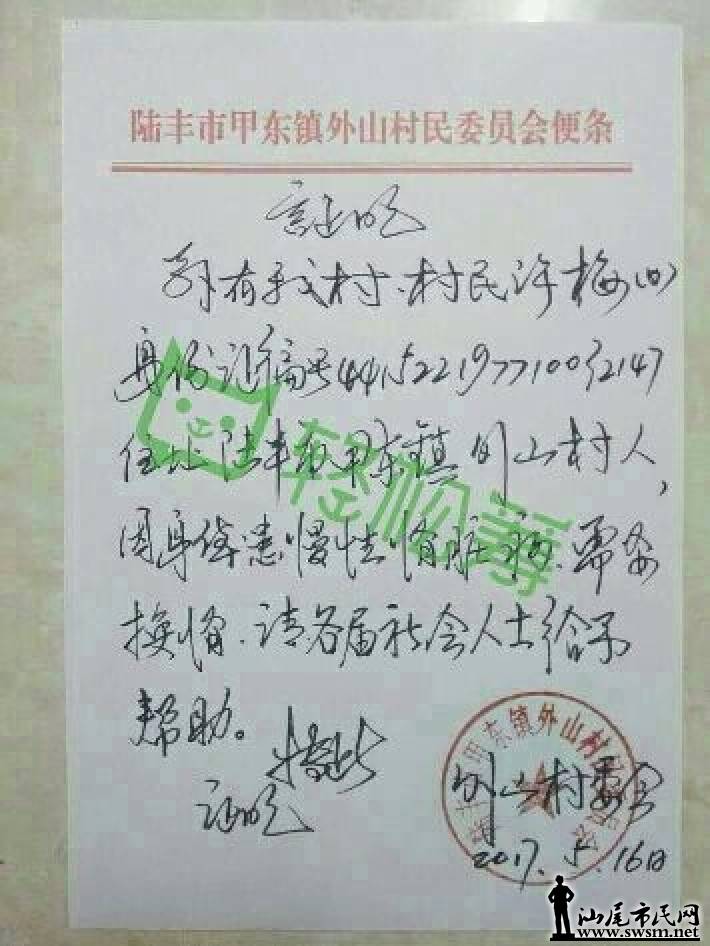 陆丰市甲东镇外山村民委员会便条
证明
兹有我村、村民许梅(女)
身份证编号441522197710032147
住址陆丰市甲东镇外山村人,
因身体患慢性肾脏病、需要
换肾、请各届社会人士给予
帮助。
特此
证明
外山村委会
2017.5.16日
轻松筹
汕尾市民网
www.swsm.net